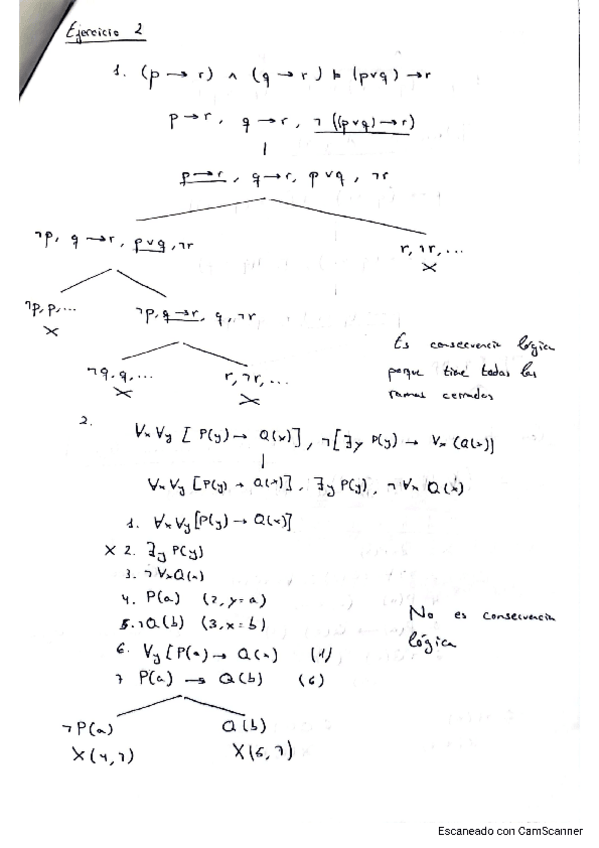 Ejercicio 2
1. (p → r) ∧ (q → r) ⊧ (p∨q) → r
p → r, q → r, ¬((p∨q) → r)
p → r, q → r, p∨q, ¬r
¬p, q → r, p∨q, ¬r
r, ¬r, ...
X
¬p, p, ...
X
¬p, q → r, q, ¬r
¬q, q, ...
X
r, ¬r, ...
X
Es consecuencia lógica
porque tiene todas las
ramas cerradas
2.
∀x∀y [P(y) → Q(x)], ¬[∃y P(y) → ∀x (Q(x))]
∀x∀y [P(y) → Q(x)], ∃y P(y), ¬∀x Q(x)
1. ∀x∀y [P(y) → Q(x)]
X 2. ∃y P(y)
3. ¬∀xQ(x)
4. P(a) (2, y=a)
5. ¬Q(b) (3, x=b)
6. ∀y [P(a) → Q(x) (1)
7 P(a) → Q(b) (6)
¬P(a)
X (4,7)
Q(b)
X (5,7)
No es consecuencia
lógica
Escaneado con CamScanner